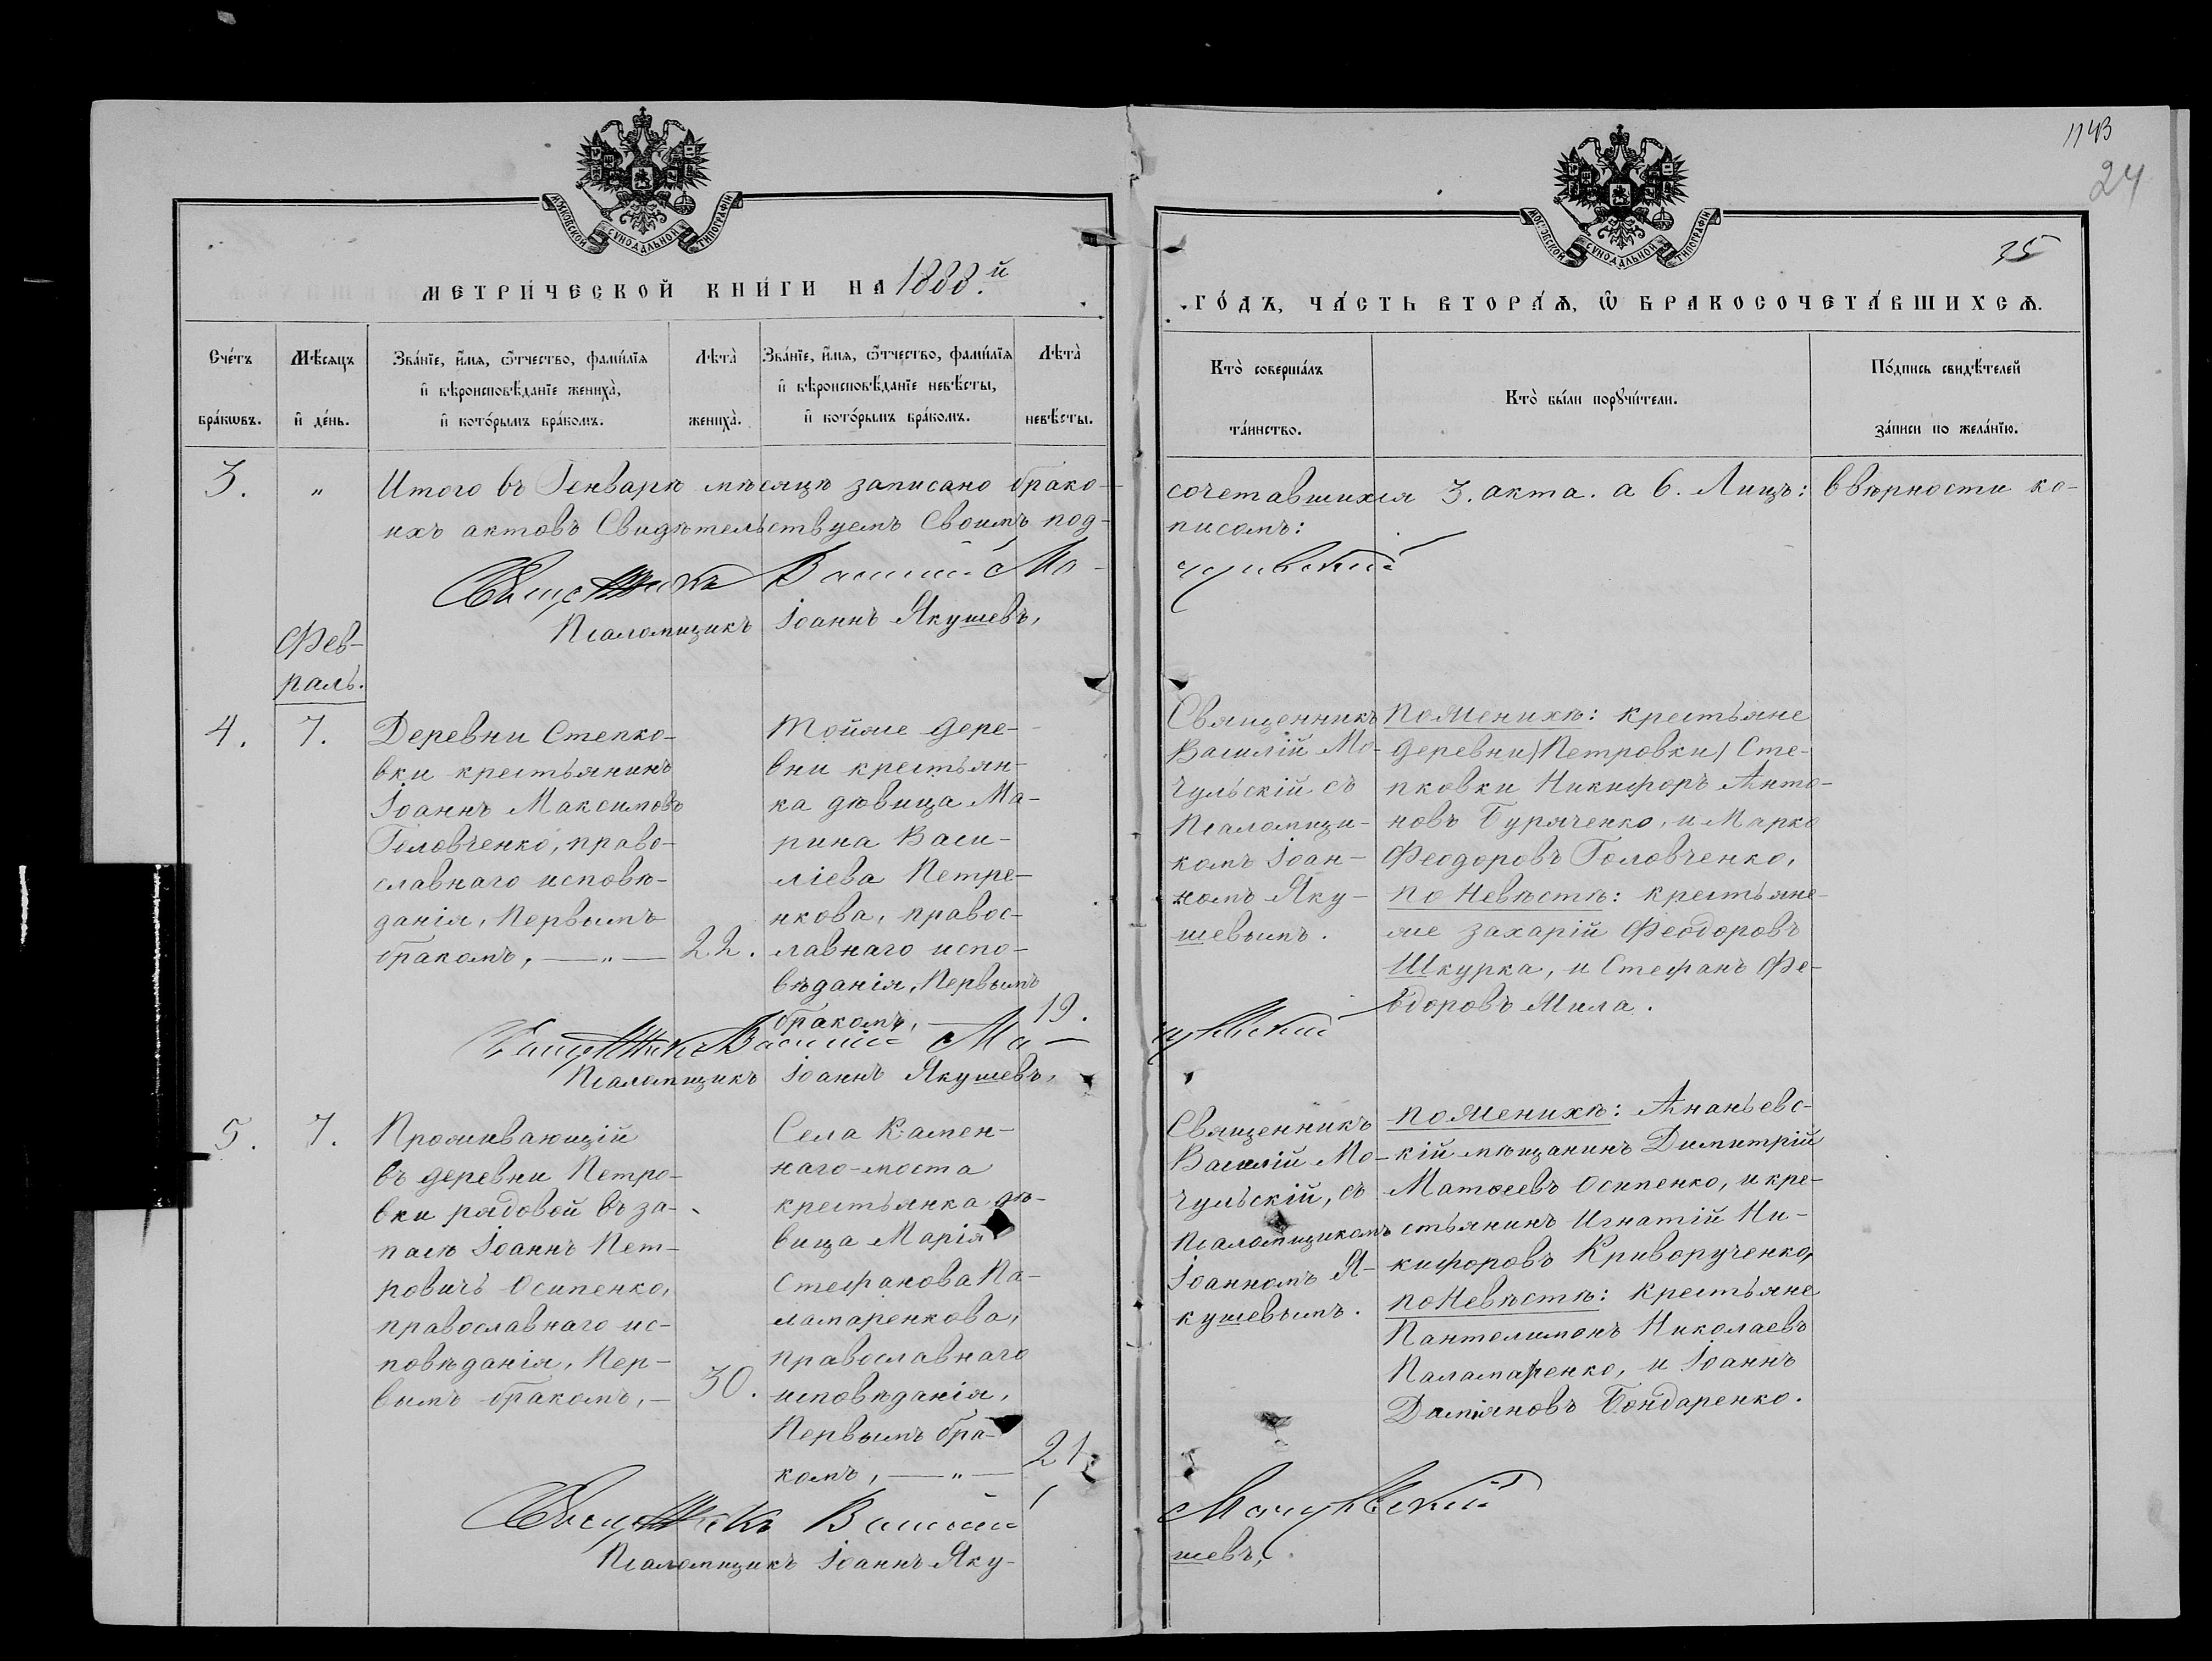 1143
24
25
МОСКОВСКОЙ СѴНОДАЛЬНОЙ ТИПОГРАФІИ
МОСКОВСКОЙ СѴНОДАЛЬНОЙ ТИПОГРАФІИ
МЕТРИ́ЧЕСКОЙ КНИ́ГИ НА 1888.й
ГО́ДЪ, ЧА́СТЬ ВТОРА́Ѧ, Ѡ҆ БРАКОСОЧЕТА́ВШИХСѦ.
Сче́тъ
бра́кѡвъ.
Мѣ́сяцъ
и҆ де́нь.
Зва́нїе, и҆́мѧ, ѻ҆́тчество, фами́лїѧ
и҆ вѣроисповѣ́данїе жениха̀,
и҆ кото́рымъ бра́комъ.
Лѣта̀
жениха̀.
Зва́нїе, и҆́мѧ, ѻ҆́тчество, фами́лїѧ
и҆ вѣроисповѣ́данїе невѣ́сты,
и҆ кото́рымъ бра́комъ.
Лѣта̀
невѣ́сты.
Кто̀ соверша́лъ
та́инство.
Кто̀ бы́ли порꙋчи́тели.
По́дпись свидѣ́телей
за́писи по жела́нїю.
3. „ Итого въ Генварѣ мѣсяцѣ записано брако-
сочетавшихся 3. акта. а 6. Лицъ: ввѣрности ко-
ихъ актовъ Свидѣтельствуемъ Своимъ под-
писомъ:
Священникъ Василій Мо-
чульскій
Псаломщикъ Іоаннъ Якушевъ,
Фев-
раль.
4. 7.
Деревни Степко-
вки крестьянинъ
Іоаннъ Максимовъ
Головченко, право-
славнаго исповѣ-
данія, Первымъ
бракомъ, — „ —
22.
Тойже дере-
вни крестьян-
ка дѣвица Ма-
рина Васи-
ліева Петре-
нкова, правос-
лавнаго испо-
вѣданія, Первымъ
бракомъ, —
19.
Священникъ
Василій Мо-
чульскій съ
Псаломщи-
комъ Іоан-
номъ Яку-
шевымъ.
по Женихѣ: крестьяне
деревни /Петровки/ Сте-
пковки Никифоръ Анто-
новъ Буряченко, и Марко
Феодоровъ Головченко,
по Невѣстѣ: крестьяне-
же Захарій Феодоровъ
Шкурка, и Стефанъ Фе-
одоровъ Мила.
Священникъ Василій Мо-
чульскій
Псаломщикъ Іоаннъ Якушевъ,
5. 7.
Проживающій
въ деревни Петро-
вки рядовой въ за-
пасѣ Іоаннъ Пет-
ровичъ Осипенко,
православнаго ис-
повѣданія, Пер-
вымъ бракомъ, —
30.
Села Камен-
наго-моста
крестьянка дѣ-
вица Марія
Стефанова Па-
ламаренкова,
православнаго
исповѣданія,
Первымъ бра-
комъ, — „ —
21.
Священникъ
Василій Мо-
чульскій, съ
Псаломщикомъ
Іоанномъ Я-
кушевымъ.
по Женихѣ: Ананьевс-
кій мѣщанинъ Димитрій
Матѳеевъ Осипенко, и кре-
стьянинъ Игнатій Ни-
кифоровъ Криворученко,
по Невѣстѣ: Крестьяне
Пантелимонъ Николаевъ
Паламаренко, и Іоаннъ
Даміановъ Бондаренко.
Священникъ Василій
Мочульскій
Псаломщикъ Іоаннъ Яку-
шевъ,